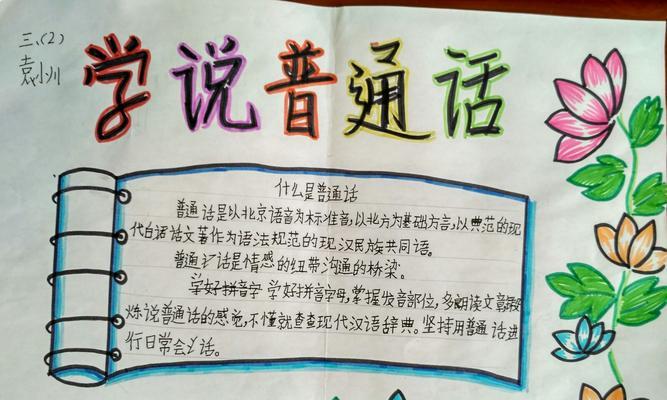 三、(2)
袁小川
学说普通话
什么是普通话
普通话是以北京语音为标准音,以北方为基础方言,以典范的现
代白话话文著作为语法规范的现汉民族共同语。
普通话是情感的纽带沟通的桥梁。
学好拼音字 学好拼音字母,掌握发音部位,多朗读文章锻
炼说普通话的感觉,不懂就查查现代汉语辞典。坚持用普通话进
行日常会话。